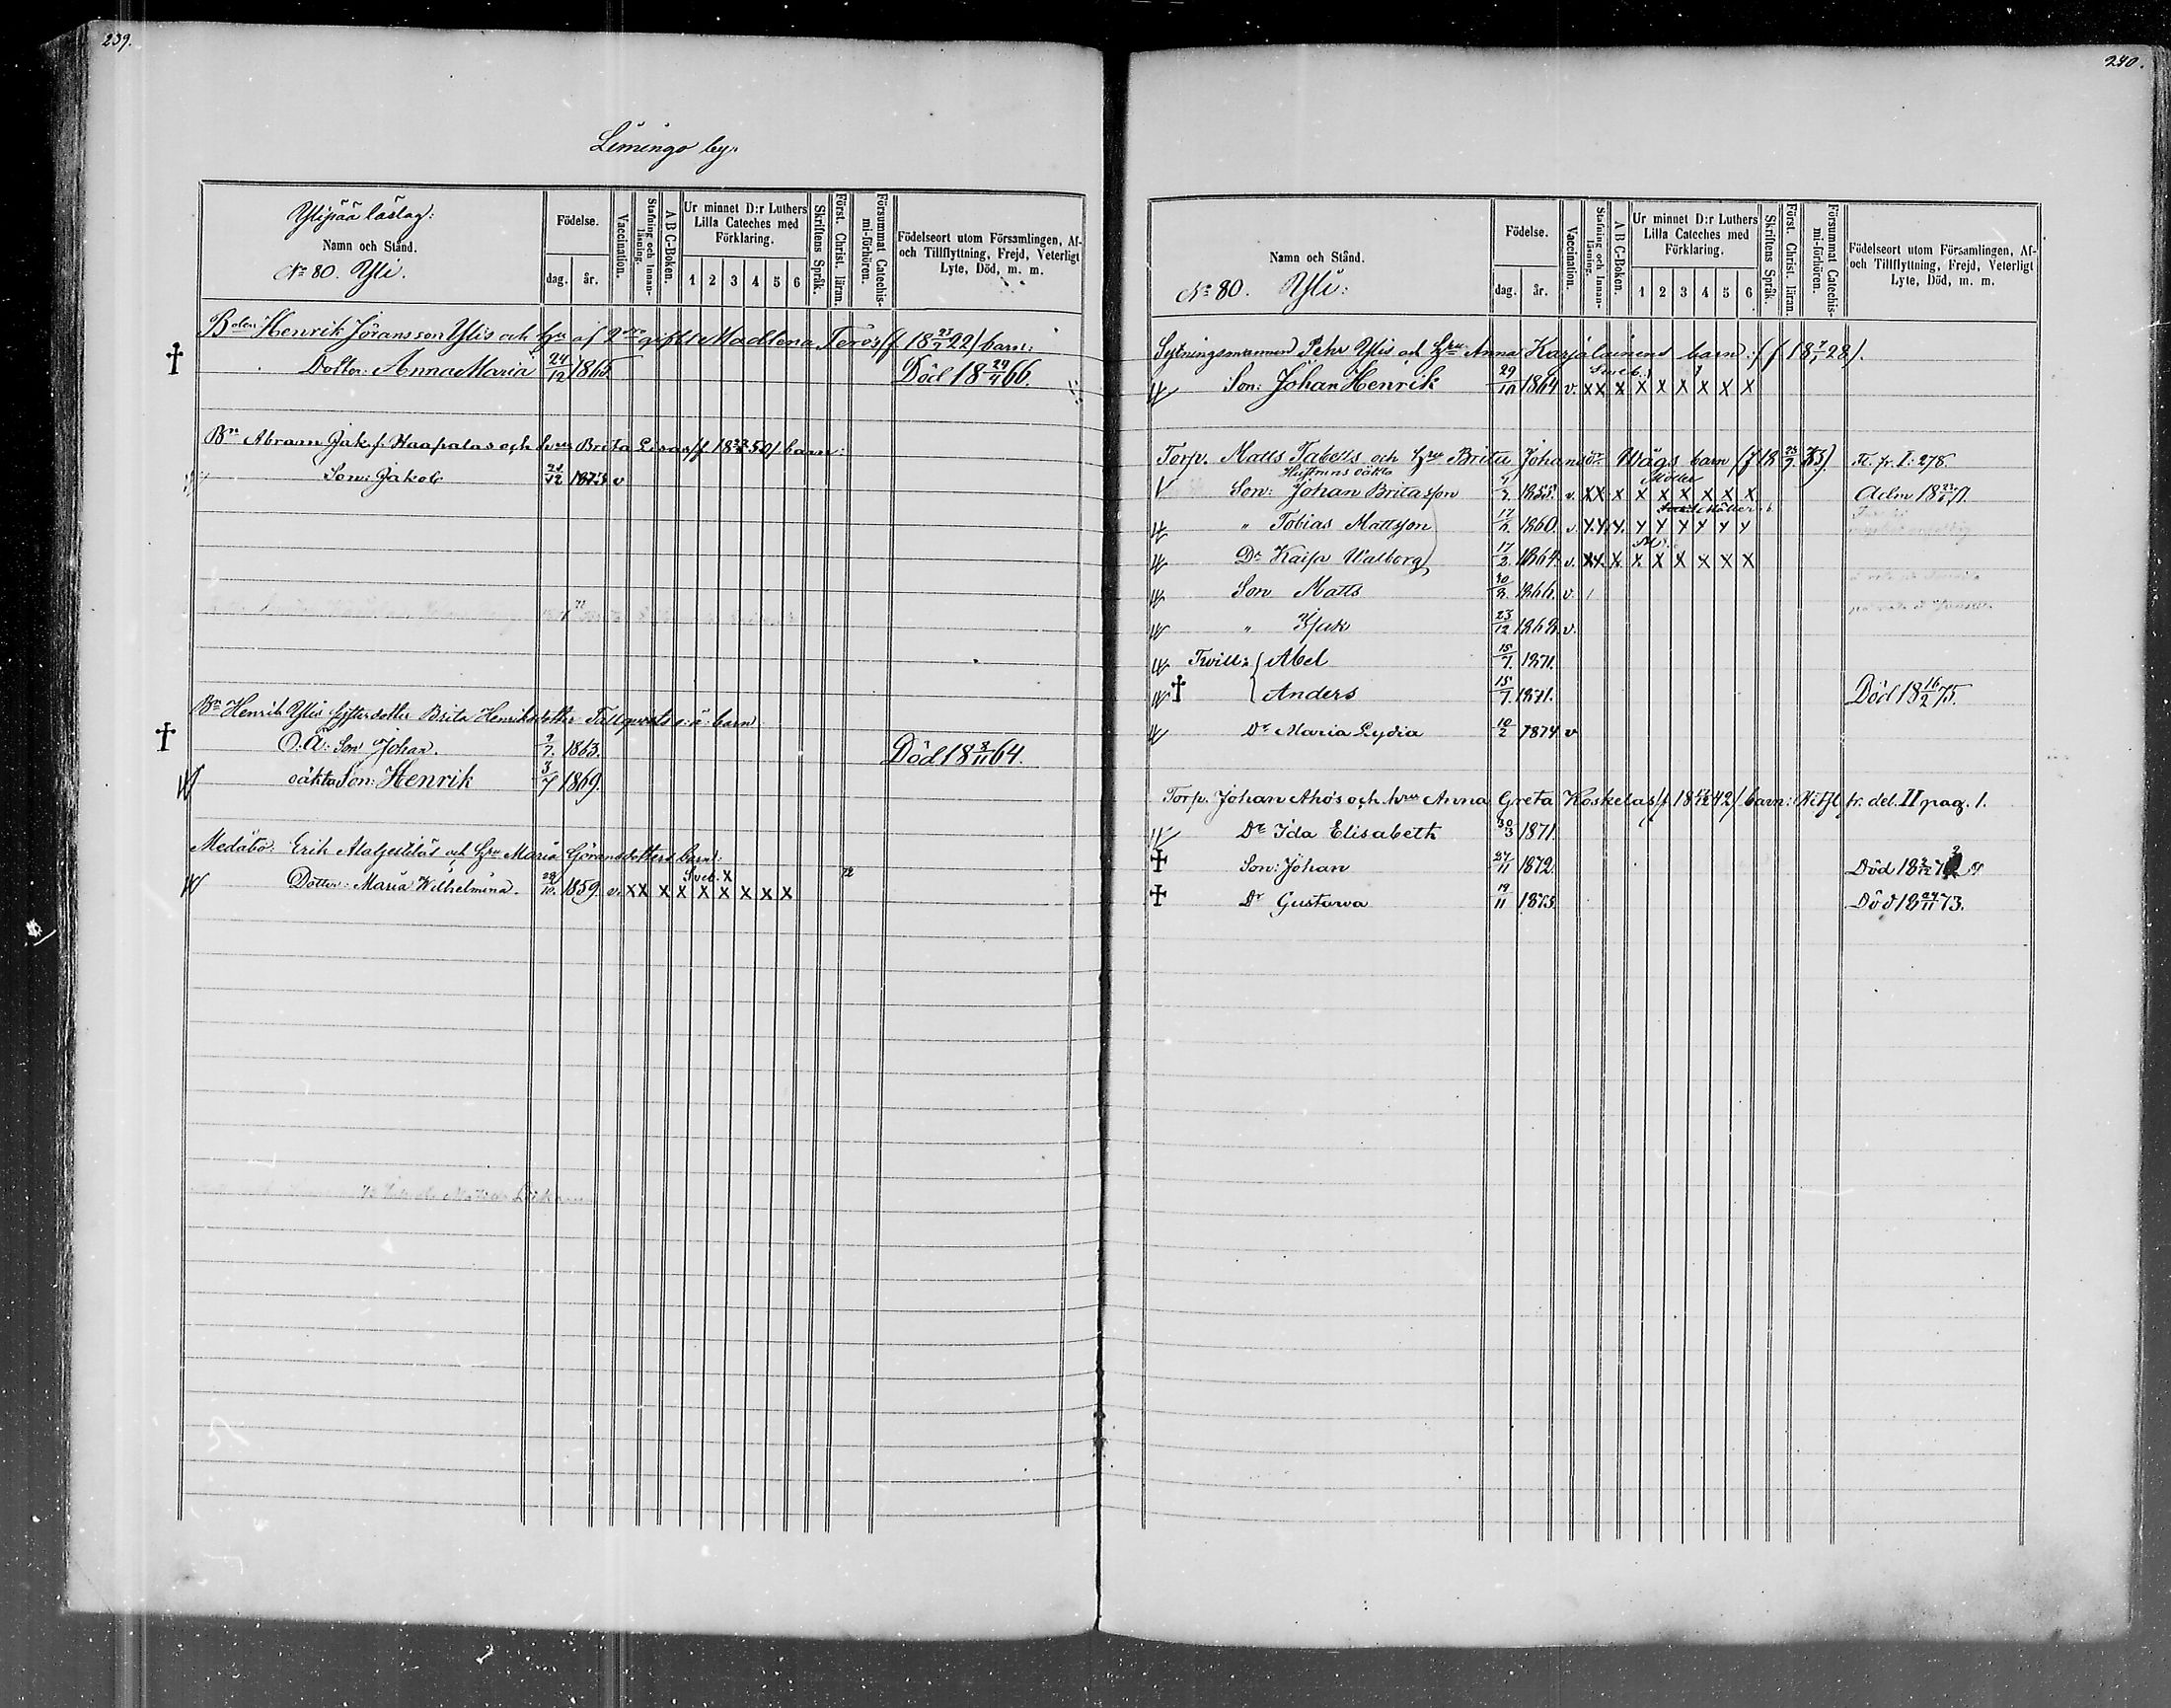 239.
Limingo by.
Ylipää läslag:
Namn och Stånd.
No 80. Yli.
Födelse.
dag. år.
Vaccination.
Stafning och Innan-läsning.
A B C-Boken.
Ur minnet D:r Luthers Lilla Cateches med Förklaring.
1 2 3 4 5 6
Skriftens Språk.
Först. Christ. läran.
Försummat Catechis-mi-förhören.
Födelseort utom Församlingen, Af- och Tillflyttning, Frejd, Veterligt Lyte, Död, m. m.
Bden Henrik Jöransson Ylis och hu af 2dra giftet Madlena Teros /f 18 23/7 22/ barn:
† Dotter: Anna Maria 24/12 1865 Död 18 29/4 66.
Bn Abram Jak.s. Haapalas och hus Brita Lisas /f. 18 50/ barn:
Son: Jakob 21/12 1873 v
Bn Henrik Ylis systerdotter Brita Henriksdotter Tallqvists o: ä: barn
† O. Ä: Son Johan. 2/7. 1863. Död 18 8/11 64.
oäkta Son: Henrik 3/7 1869.
Erik och hru Maria Göransdotters barn:
Dotter: Maria Wilhelmina. 28/10. 1859 v. x x x x x x x x x
240.
Namn och Stånd.
No 80. Yli:
Födelse.
dag. år.
Vaccination.
Stafning och Innan-läsning.
A B C-Boken.
Ur minnet D:r Luthers Lilla Cateches med Förklaring.
1 2 3 4 5 6
Skriftens Språk.
Först. Christ. läran.
Försummat Catechis-mi-förhören.
Födelseort utom Församlingen, Af- och Tillflyttning, Frejd, Veterligt Lyte, Död, m. m.
Sytningsmannen Pehr Ylis och Hru Anna Karjalainens barn: /f 18 7/7 28/.
Son: Johan Henrik 29/10 1864 v. x x x x x x x x x
Torp. Matts Tabells och Hru Brita Johansdr Wägs barn Fl. fr. I: 278.
Hustruns oäkta
Son: Johan Britasson 1855. v. x x x x x x x x x Adm 18 71.
" Tobias Mattsson 17/2. 1860. v. x x x x x x x x x
Dr Kajsa Walborg 17/2. 1864. v. x x x x x x x x x
Son Matts 30/3. 1866. v.
" Isak 23/12 1868. v.
Tvill: { Abel 15/7. 1871.
† { Anders 15/7 1871. Död 18 16/2 75.
Dr Maria Lydia 10/2 1874 v
Torp. Johan Ahos och hru Anna Greta Koskelas /f 18 42/ barn: fr. del. II pag. 1.
Dr Ida Elisabeth 30/3 1871.
† Son: Johan 27/11 1872. Död
† Dr Gustawa 19/11 1873. Död 18 24/11 73.